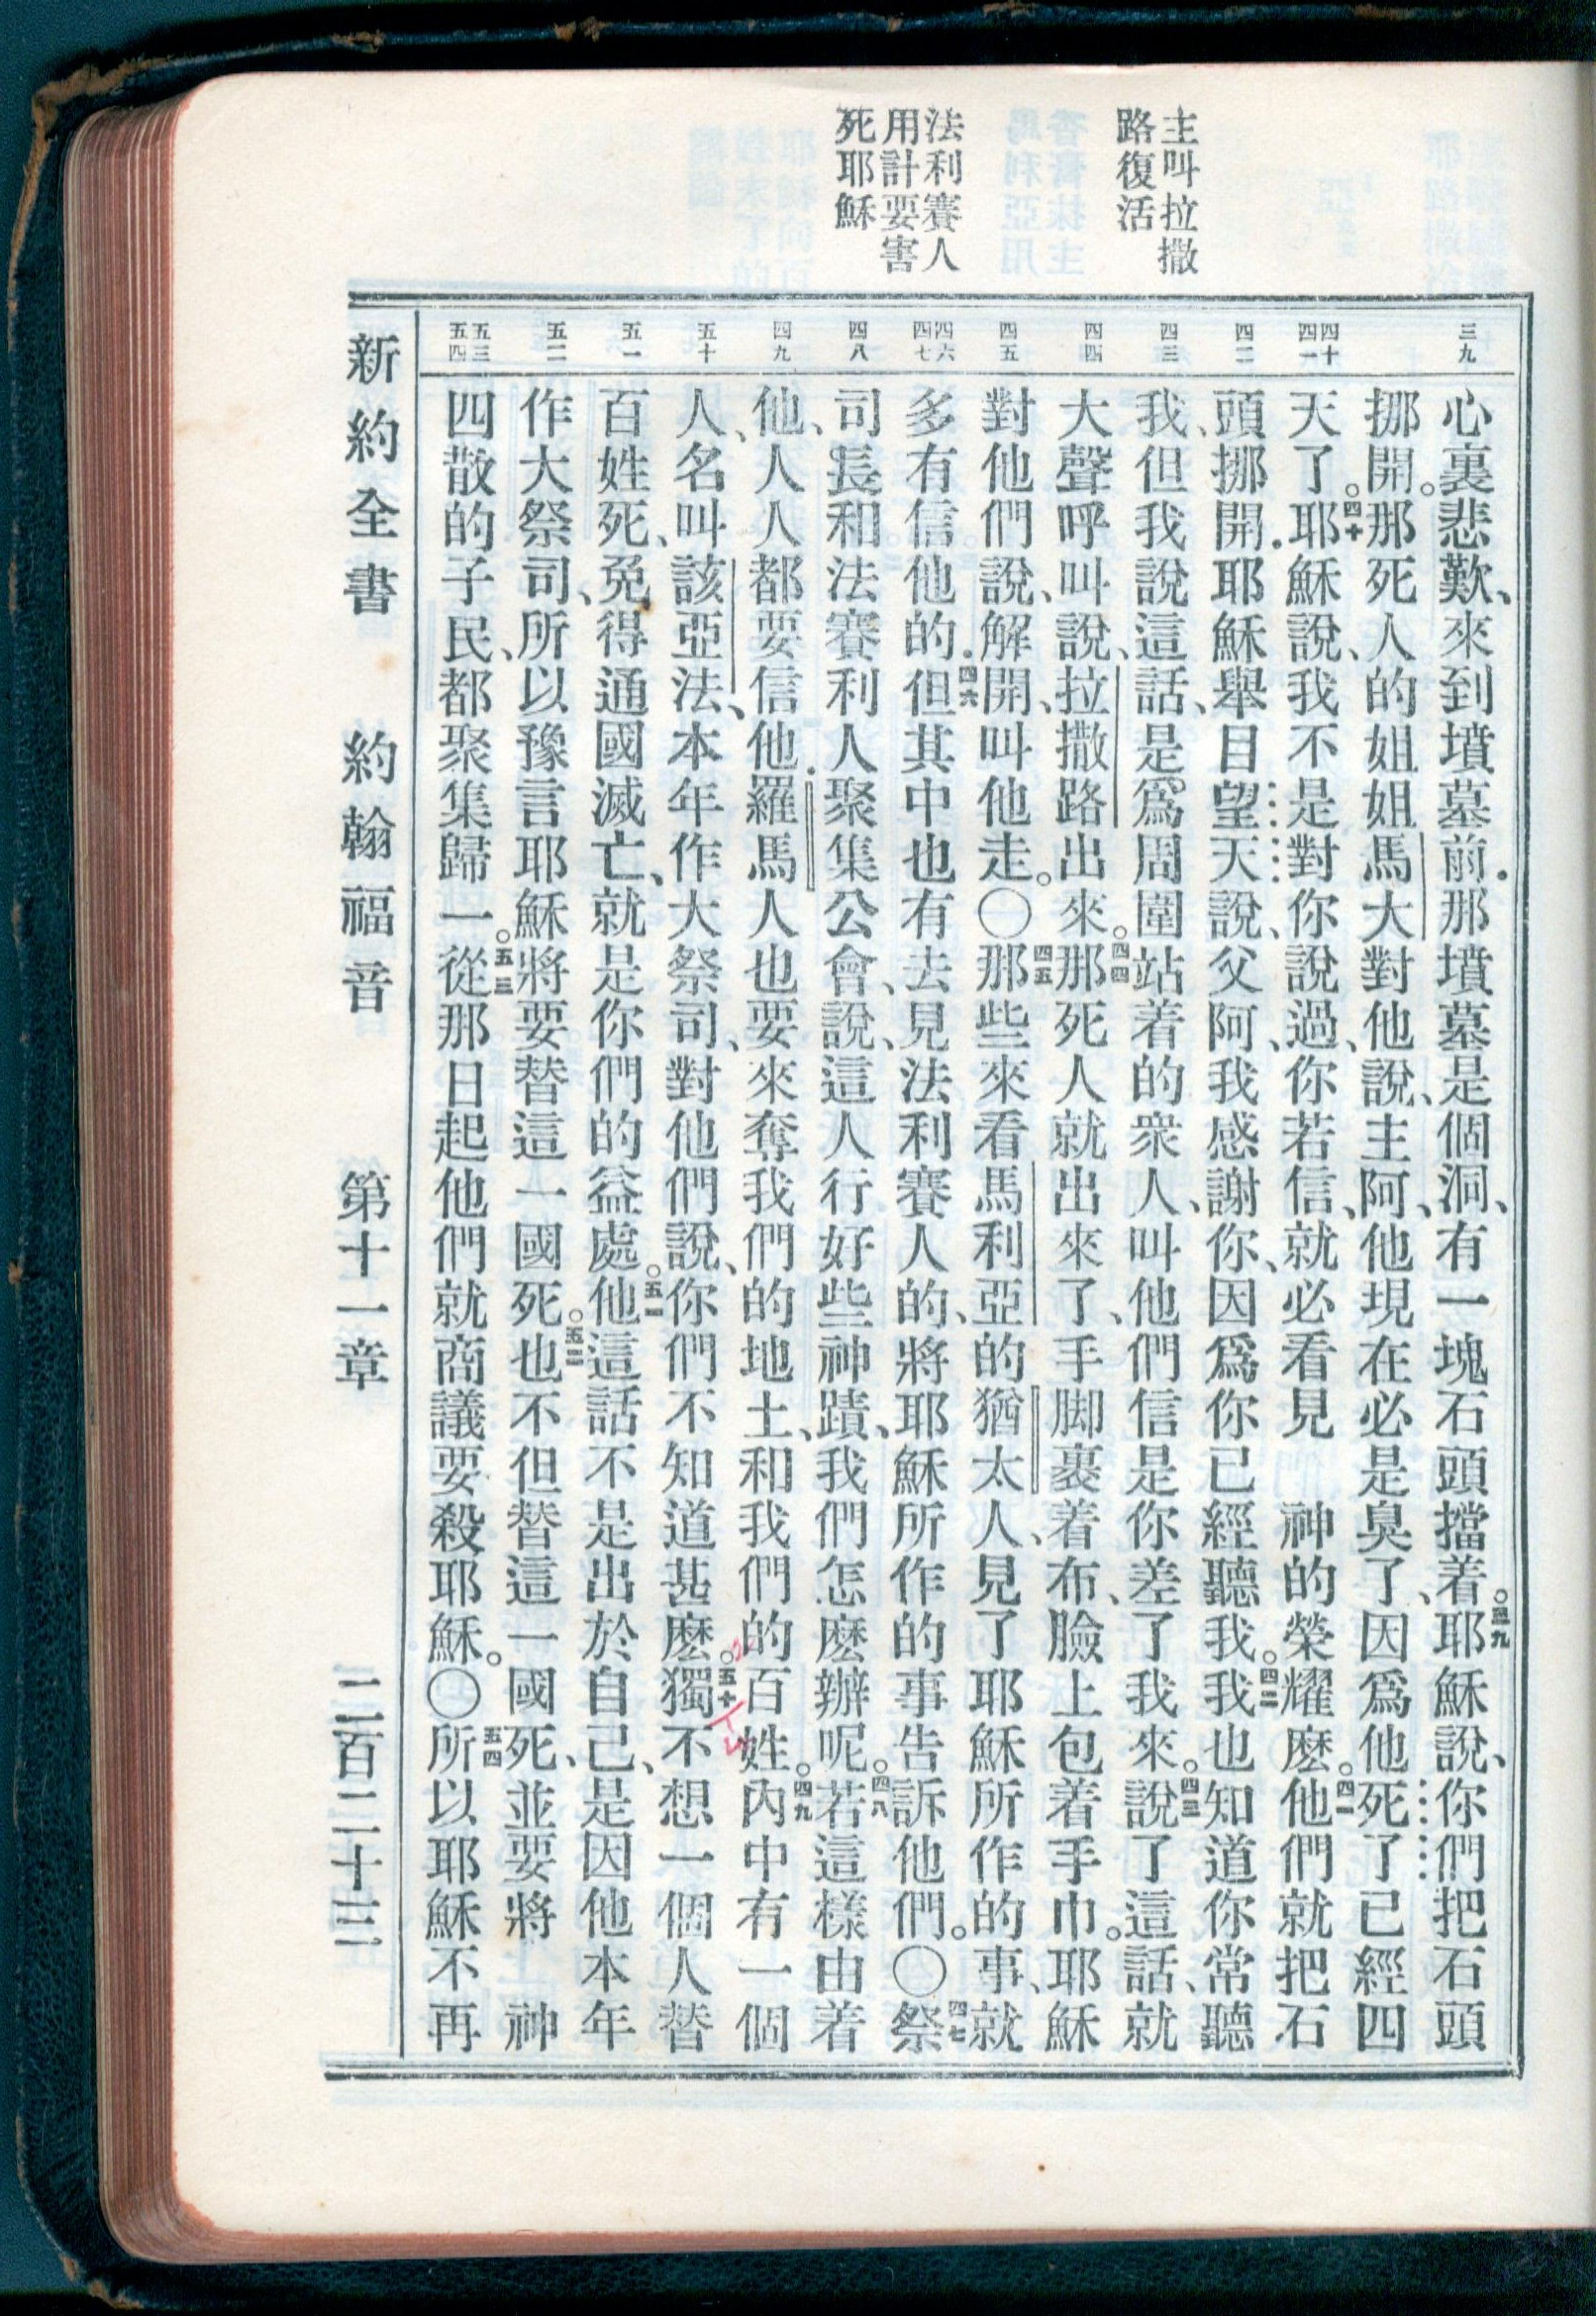 主叫拉撒
路復活
法利賽人
用計要害
死耶穌
三九
心裏悲歎、來到墳墓前．那墳墓是個洞、有一塊石頭擋着。三九耶穌說、你們把石頭
挪開。那死人的姐姐馬大對他說、主阿、他現在必是臭了、因爲他死了已經四
四十
四一
天了。四十耶穌說、我不是對你說過、你若信、就必看見　神的榮耀麽。四一他們就把石
四二
頭挪開．耶穌舉目望天說、父阿、我感謝你、因爲你已經聽我。四二我也知道你常聽
四三
我、但我說這話、是爲周圍站着的衆人、叫他們信是你差了我來。四三說了這話、就
四四
大聲呼叫說、拉撒路出來。四四那死人就出來了、手脚裹着布、臉上包着手巾。耶穌
四五
對他們說、解開、叫他走。〇四五那些來看馬利亞的猶太人、見了耶穌所作的事、就
四六
四七
多有信他的．四六但其中也有去見法利賽人的、將耶穌所作的事告訴他們。〇四七祭
四八
司長和法賽利人聚集公會、說、這人行好些神蹟、我們怎麽辦呢。四八若這樣由着
四九
他、人人都要信他．羅馬人也要來奪我們的地土、和我們的百姓。四九內中有一個
五十
人、名叫該亞法、本年作大祭司、對他們說、你們不知道甚麽。五十獨不想一個人替
五一
百姓死、免得通國滅亡、就是你們的益處。五一他這話不是出於自己、是因他本年
五二
作大祭司、所以豫言耶穌將要替這一國死。五二也不但替這一國死、並要將　神
五三
五四
四散的子民、都聚集歸一。五三從那日起他們就商議要殺耶穌。〇五四所以耶穌不再
新約全書　約翰福音　第十一章　二百二十三